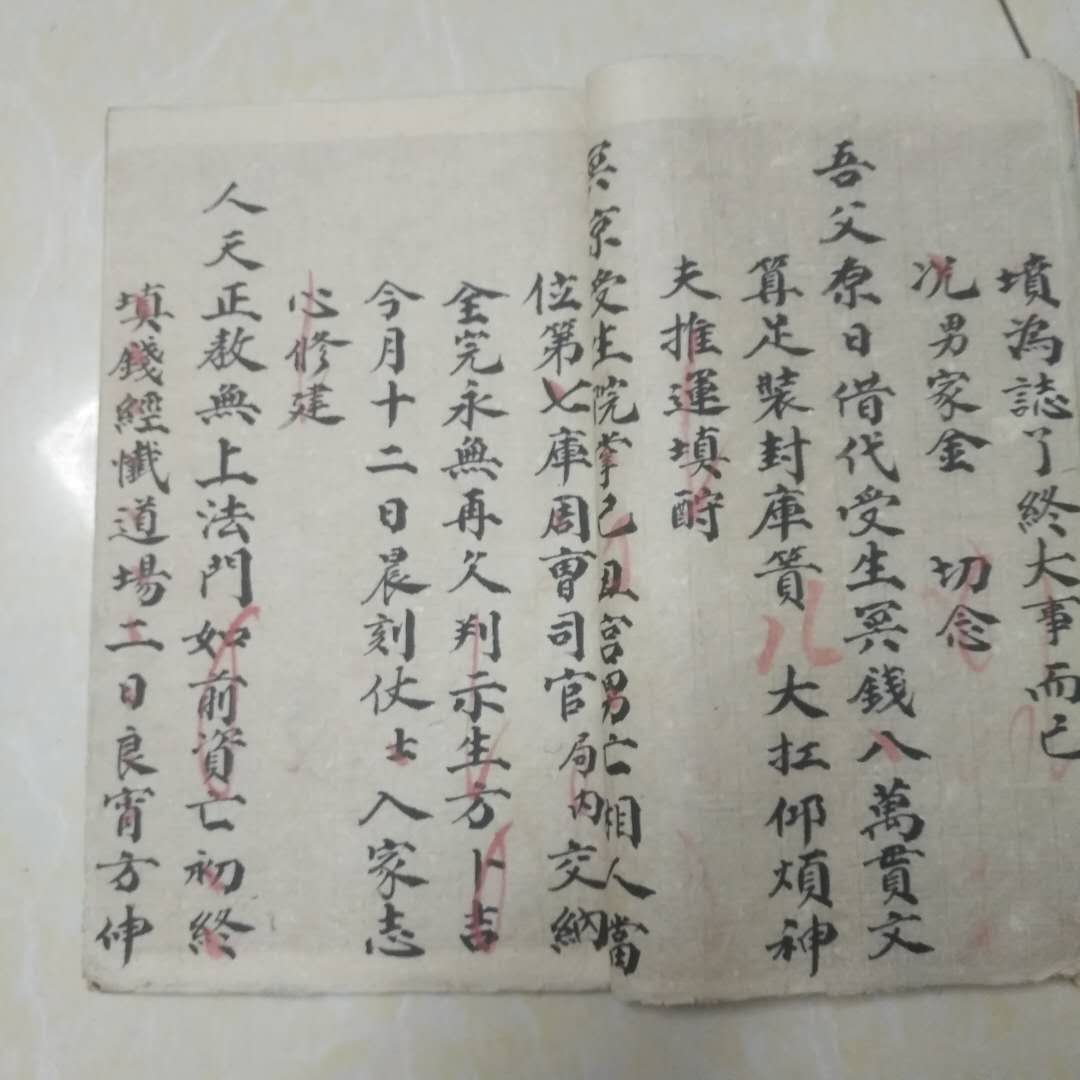 墳為誌了終大事而已
况男家金 切念
吾父原日借代受生冥錢八萬貫文
算足裝封庫簣 大扛仰煩神
夫推運填酧
冥京受生院掌己丑宮男亡相人當
位第七庫周曹司官局内交納
全完永無再欠判示生方卜吉
今月十二日晨刻仗士入家志
心修建
人天正教無上法門如前資亡初終
填錢經懺道場二日良宵方伸